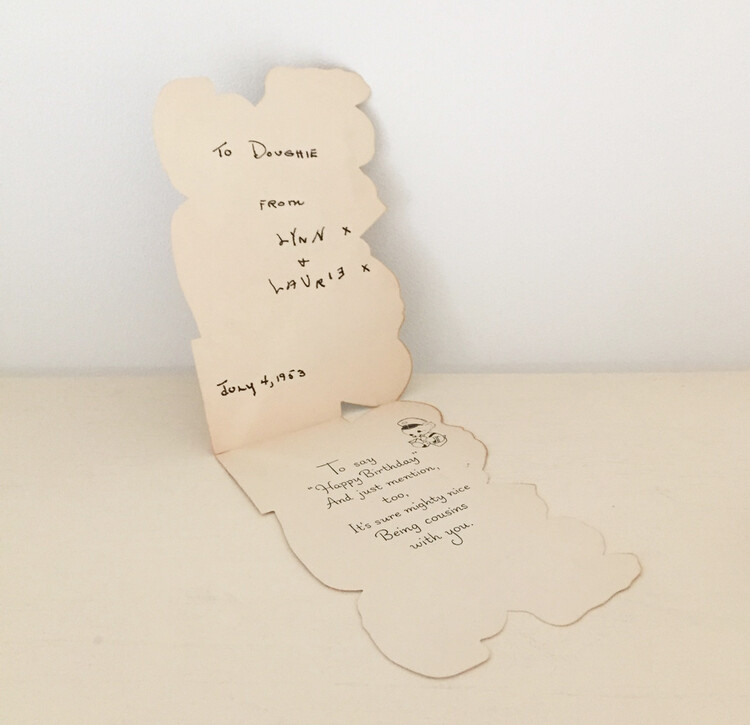 To DOUGHIE
FROM
LYNN x
+
LAURIE x
July 4, 1953
To say
"Happy Birthday"
And just mention,
too,
It's sure mighty nice
Being cousins
with you.